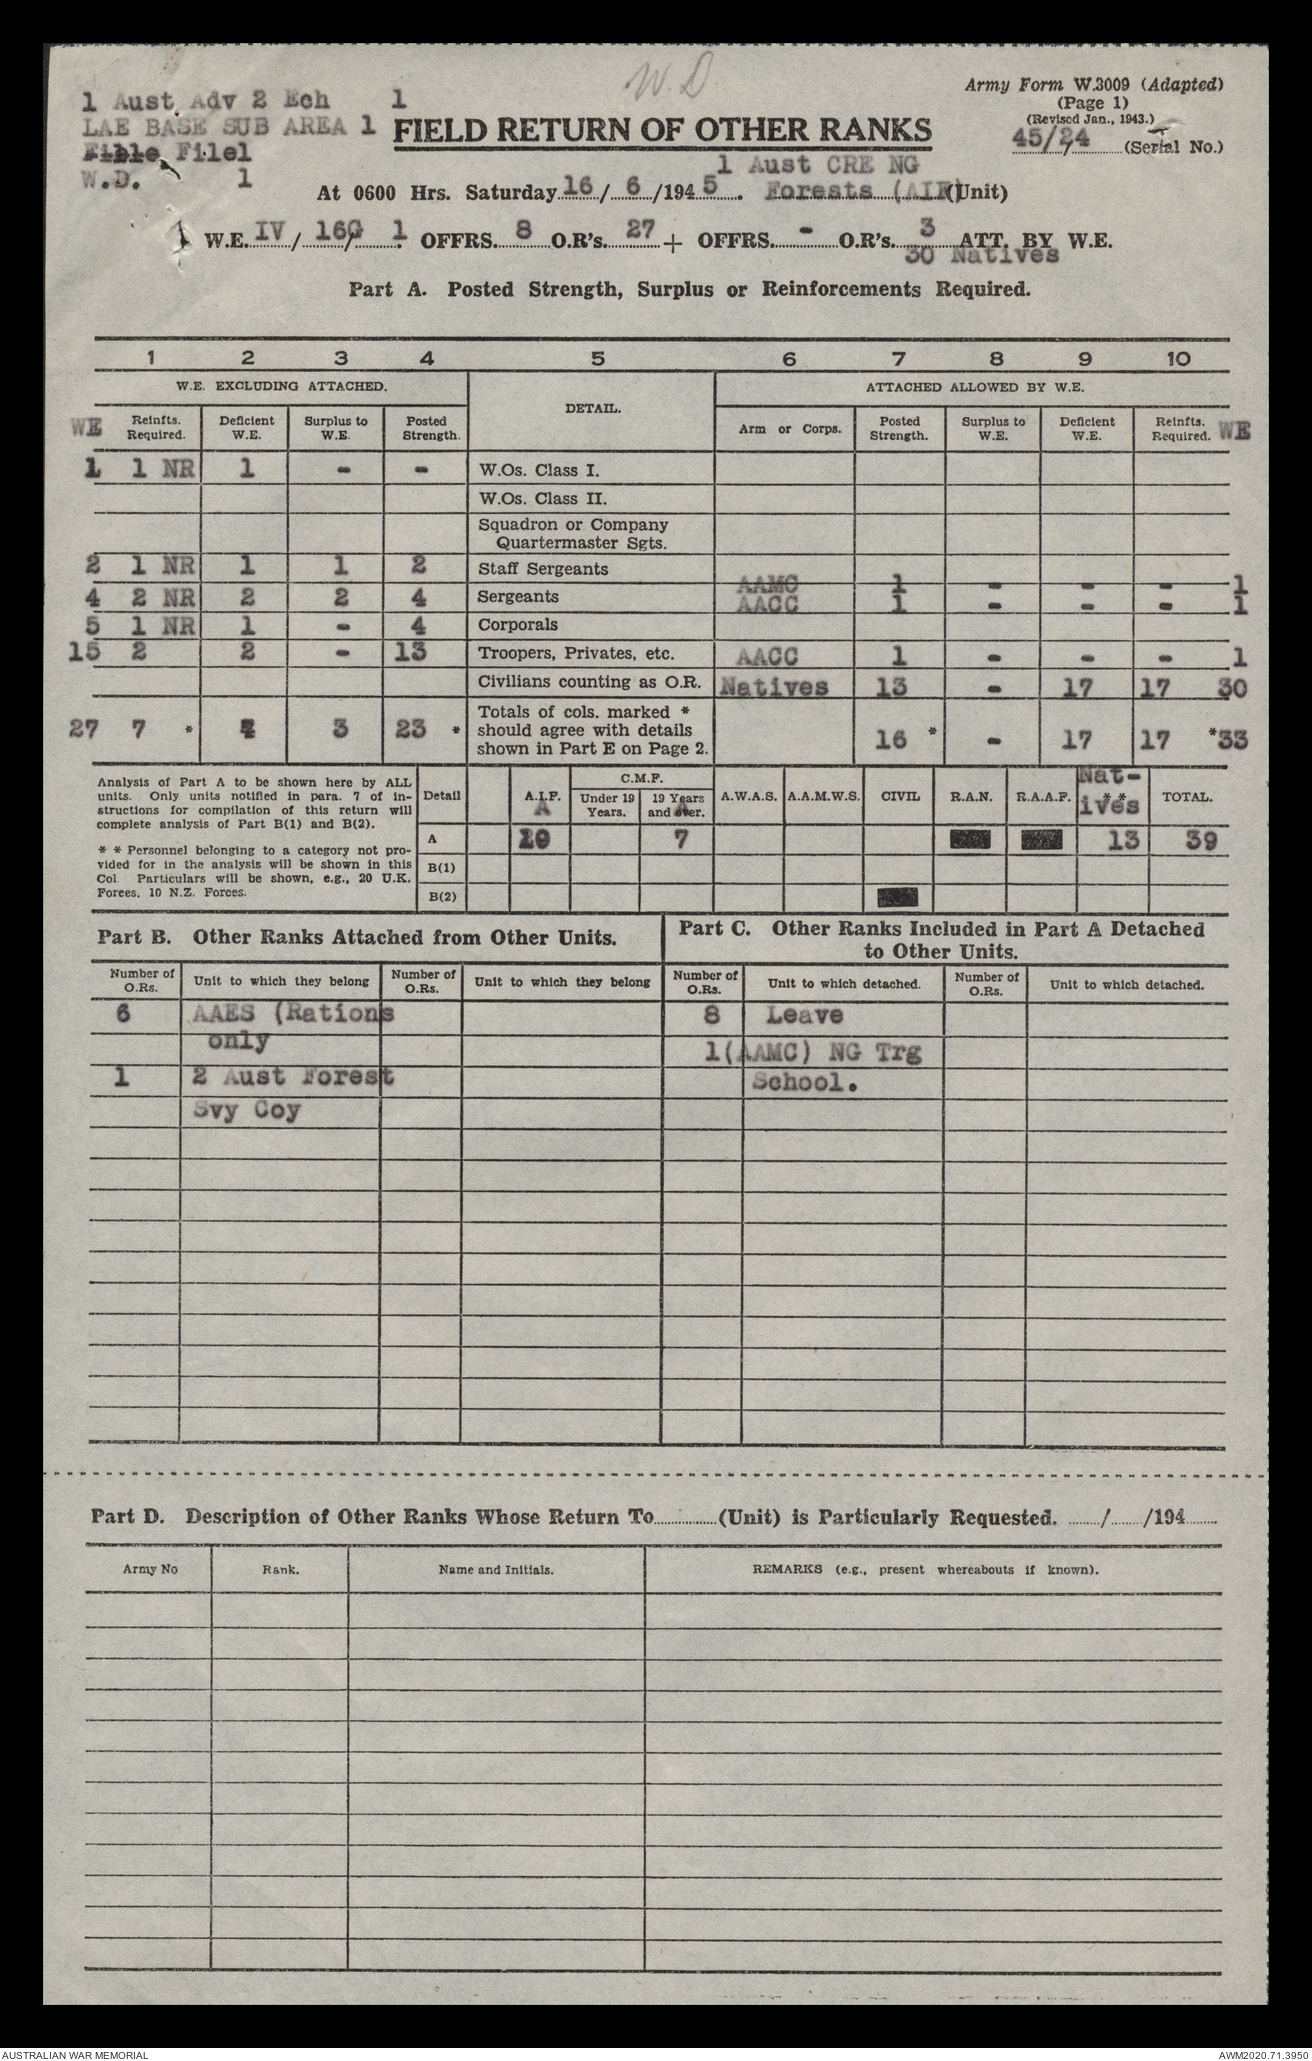 W.D.
1 Aust Adv 2 Ech 1
LAE BASE SUB AREA 1
File1
W.D. 1
Army Form W.3009 (Adapted)
(Page 1)
(Revised Jan., 1943.)
45/24 (Serial No.)
FIELD RETURN OF OTHER RANKS
1 Aust CRE NG
At 0600 Hrs. Saturday 16/ 6 /1945. Forests (AIF) (Unit)
1 W.E. IV / 16G/ 1 OFFRS. 8 O.R's. 27 + OFFRS. - O.R's. 3 ATT. BY W.E.
30 Natives
Part A. Posted Strength, Surplus or Reinforcements Required.
1 2 3 4 5 6 7 8 9 10
W.E. EXCLUDING ATTACHED. DETAIL. ATTACHED ALLOWED BY W.E.
WE Reinfts. Required. Deficient W.E. Surplus to W.E. Posted Strength. Arm or Corps. Posted Strength. Surplus to W.E. Deficient W.E. Reinfts. Required. WE
1 1 NR 1 - - W.Os. Class I.
W.Os. Class II.
Squadron or Company
Quartermaster Sgts.
2 1 NR 1 1 2 Staff Sergeants
AAMC 1 - - - 1
4 2 NR 2 2 4 Sergeants AACC 1 - - - 1
5 1 NR 1 - 4 Corporals
15 2 2 - 13 Troopers, Privates, etc. AACC 1 - - - 1
Civilians counting as O.R. Natives 13 - 17 17 30
27 7 * 3 23 * Totals of cols. marked * should agree with details shown in Part E on Page 2. 16 * - 17 17 *33
Analysis of Part A to be shown here by ALL
units. Only units notified in para. 7 of in-
structions for compilation of this return will
complete analysis of Part B(1) and B(2).
* * Personnel belonging to a category not pro-
vided for in the analysis will be shown in this
Col. Particulars will be shown, e.g., 20 U.K.
Forces, 10 N.Z. Forces.
Detail A.I.F. A C.M.F. Under 19 Years. 19 Years and over. A A.W.A.S. A.A.M.W.S. CIVIL R.A.N. R.A.A.F. Nat- ives * * TOTAL.
A 7 13 39
B(1)
B(2)
Part B. Other Ranks Attached from Other Units.
Part C. Other Ranks Included in Part A Detached
to Other Units.
Number of O.Rs. Unit to which they belong Number of O.Rs. Unit to which they belong Number of O.Rs. Unit to which detached. Number of O.Rs. Unit to which detached.
6 AAES (Rations 8 Leave
only 1(AAMC) NG Trg
1 2 Aust Forest School.
Svy Coy
Part D. Description of Other Ranks Whose Return To (Unit) is Particularly Requested. / /194
Army No Rank. Name and Initials. REMARKS (e.g., present whereabouts if known).
AUSTRALIAN WAR MEMORIAL AWM2020.71.3950